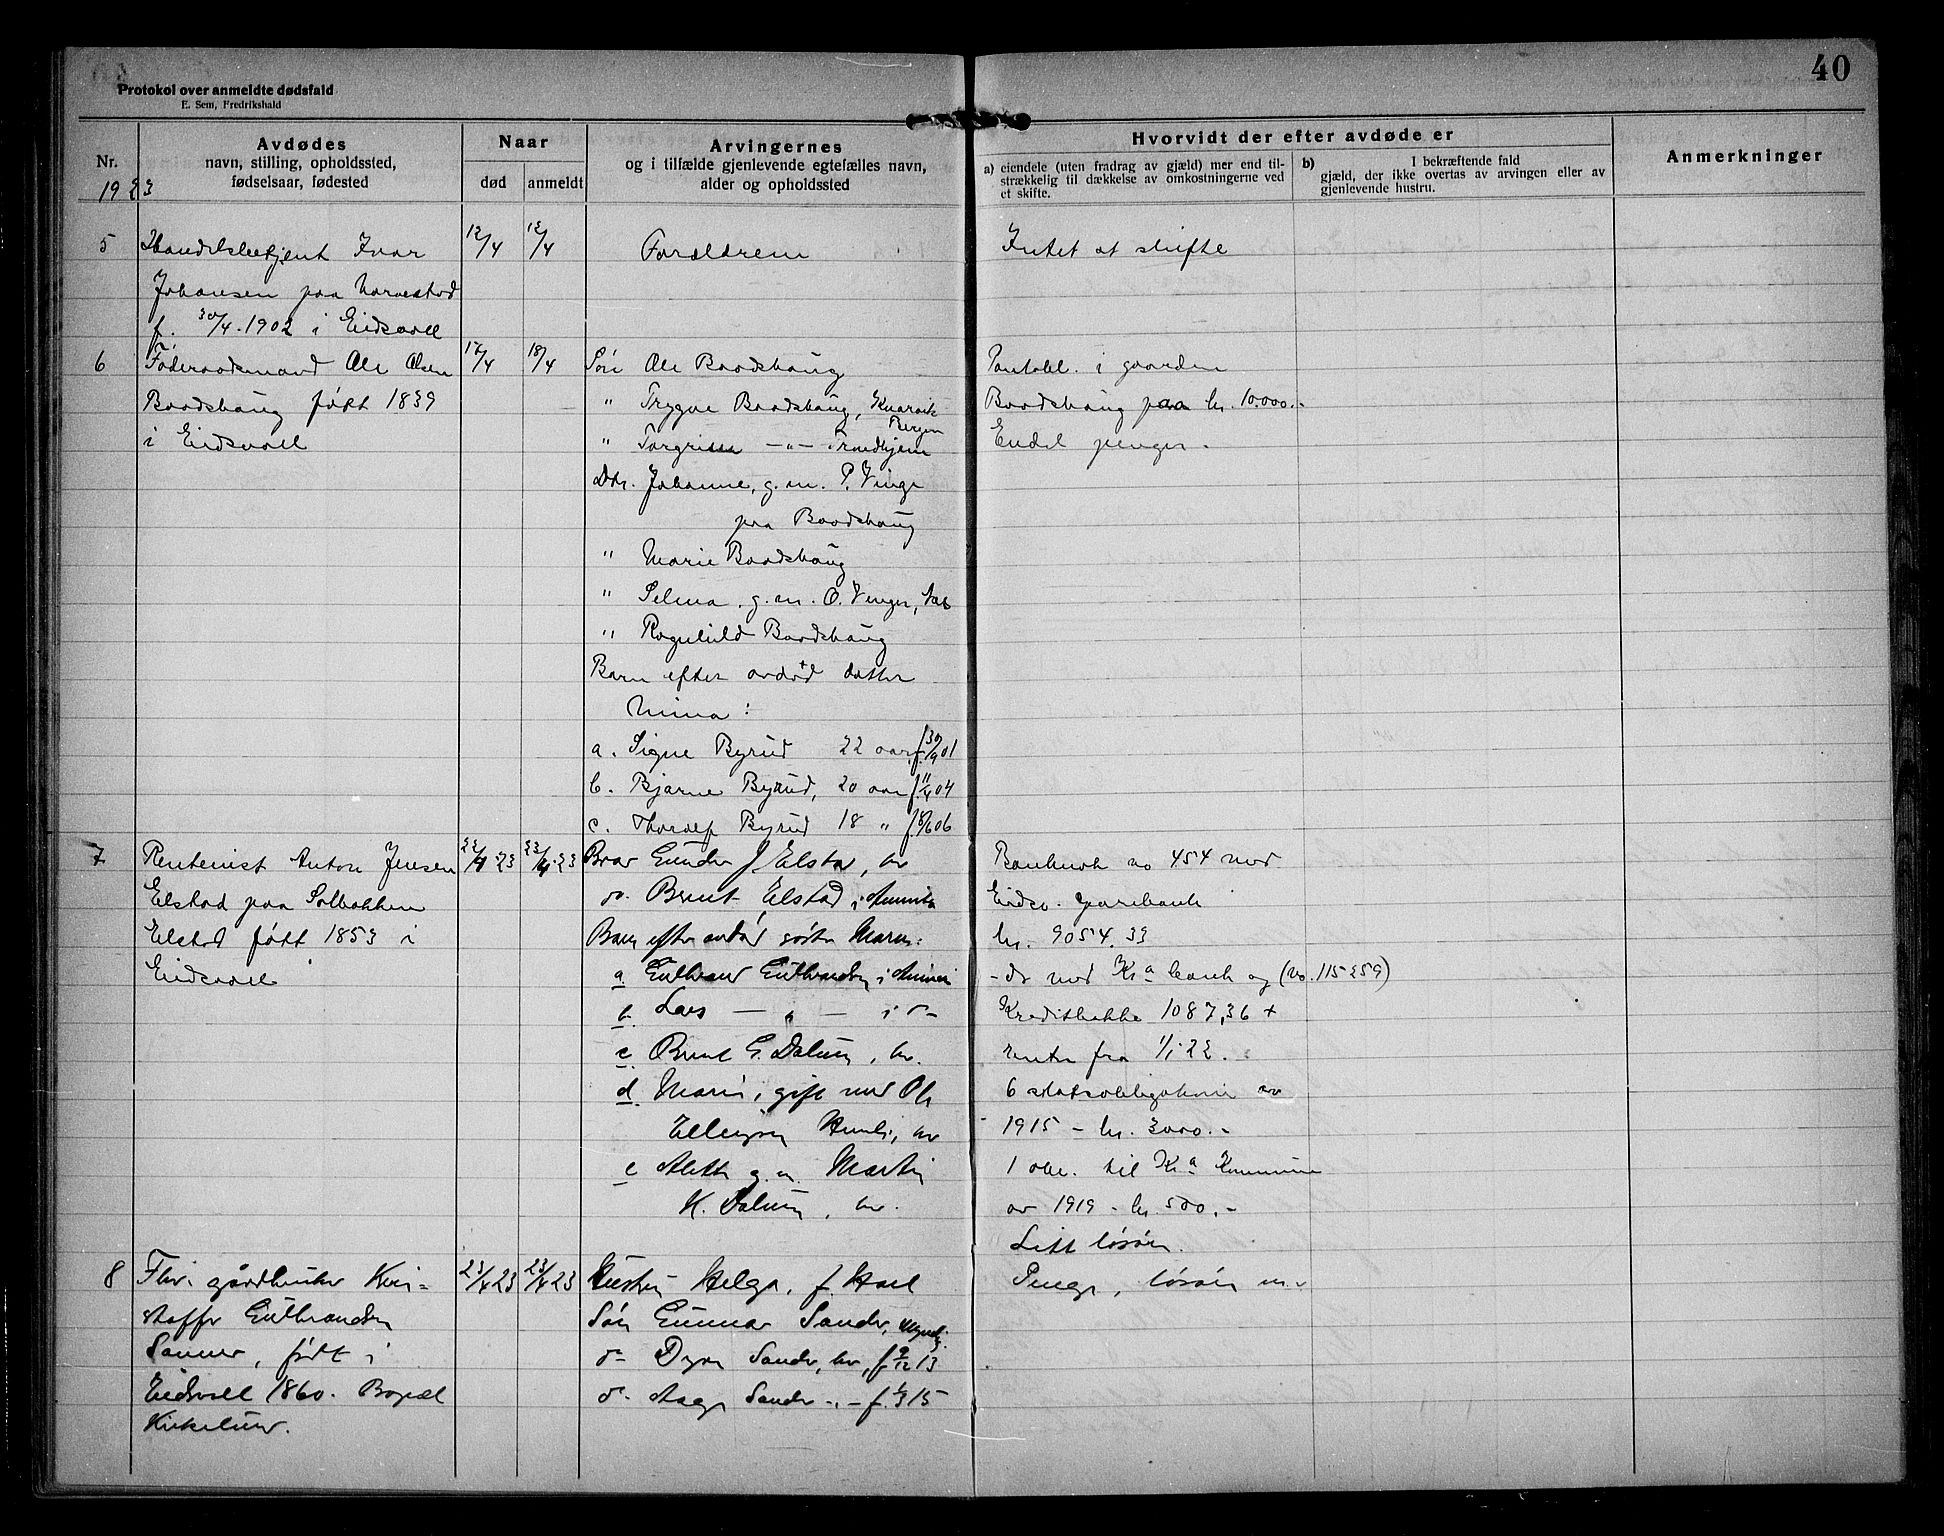 40
Protokol over anmeldte dødsfald
E. Sem, Fredrikshald
Nr.
1923
Avdødes
navn, stilling, opholdssted,
fødselsaar, fødested
Naar
død
anmeldt
Arvingernes
og i tilfælde gjenlevende egtefælles navn,
alder og opholdssted
Hvorvidt der efter avdøde er
a) eiendele (uten fradrag av gjæld) mer end til-
strækkelig til dækkelse av omkostningerne ved
et skifte.
b) I bekræftende fald
gjæld, der ikke overtas av arvingen eller av
gjenlevende hustru.
Anmerkninger
5 Handelsbetjent Ivar 12/4 12/4 Forældrene Intet at skifte
Johansen paa
f. 30/4.1902 i Eidsvoll
6 Føderaadsmand Ole Olsen 17/4 18/4 Søn Ole Baadshaug Pantobl. i gaarden
Baadshaug født 1839 " Trygve Baadshaug, Knarvik Baadshaug paa kr. 10.000.-
Bergen
i Eidsvoll " Torgrim -"- Trondhjem Endel penger.
Dtr. Johanne, g. m. P. Vinge
paa Baadshaug
" Marie Baadshaug
" Selma g. m. O. Venger,
" Ragnhild Baadshaug
Barn efter avdød datter
Mina:
a. Signe Byrud 22 aar f. 30/9 01
b. Bjarne Byrud, 20 aar f. 11/4 04
c. Thoralf Byrud 18 " f. 8/6 06
7 Rentenist Anton Jensen 22/4 23 23/4 23 Bror Gunder J Elstad, her Bankbok no 454 med
Elstad paa Solbakken do. Bernt Elstad i Amerika Eidsv. sparebank
Elstad født 1853 i Barn efter avdød søster Maren: kr. 9054.33
Eidsvoll a. Gulbrand Gulbrandsen i Amerika - do med Kra bank og (no. 115259)
b. Lars - " - i do Kreditbakke 1087,36 +
c. Bernt G. Dalum, her. renter fra 1/1 22.
d. Marie, gift med Ole 6 statsobligationer av
Ellingsen Humli, her 1915 - kr. 3000.-
e g. m. Martin 1 obl. til Kra Kommune
H. Dalum, her. av 1919 - kr. 500.-
Litt løsøre.
8 Fhv. gårdbruker Kri- 23/4 23 23/4 23 Hustru Helga, f. Hoel Penge, løsøre m.
stoffer Gulbrandsen Søn Gunnar Sander, myndig.
Sanner, født i do Dyre Sander, her, f. 9/12 13
Eidsvoll 1860. Bopæl do. Aage Sander -"- f. 1/3 15